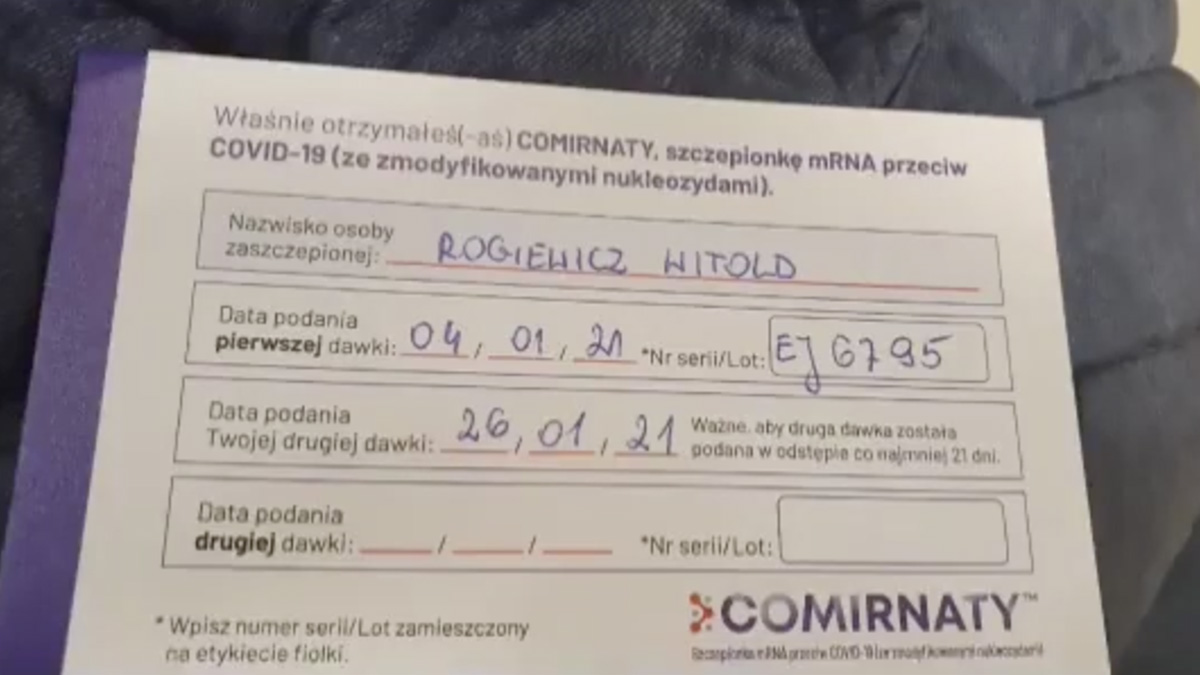 Właśnie otrzymałeś(-aś) COMIRNATY, szczepionkę mRNA przeciw
COVID-19 (ze zmodyfikowanymi nukleozydami).
Nazwisko osoby
zaszczepionej: ROGIEWICZ WITOLD
Data podania
pierwszej dawki: 04 / 01 / 21 *Nr serii/Lot: EJ 6795
Data podania
Twojej drugiej dawki: 26 / 01 / 21 Ważne, aby druga dawka została
podana w odstępie co najmniej 21 dni.
Data podania
drugiej dawki: / / *Nr serii/Lot:
* Wpisz numer serii/Lot zamieszczony
na etykiecie fiolki.
COMIRNATY™
Szczepionka mRNA przeciw COVID-19 (ze zmodyfikowanymi nukleozydami)